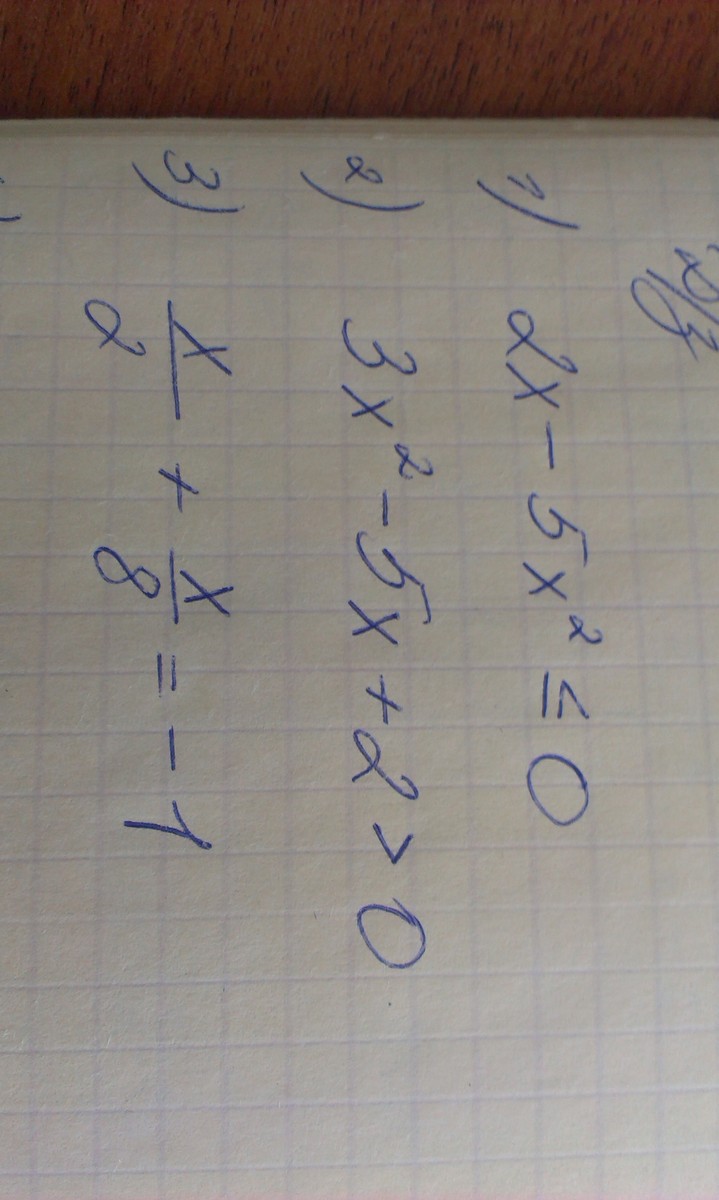 Д/з
1) 2x - 5x² ≤ 0
2) 3x² - 5x + 2 > 0
3) x/2 + x/8 = -1